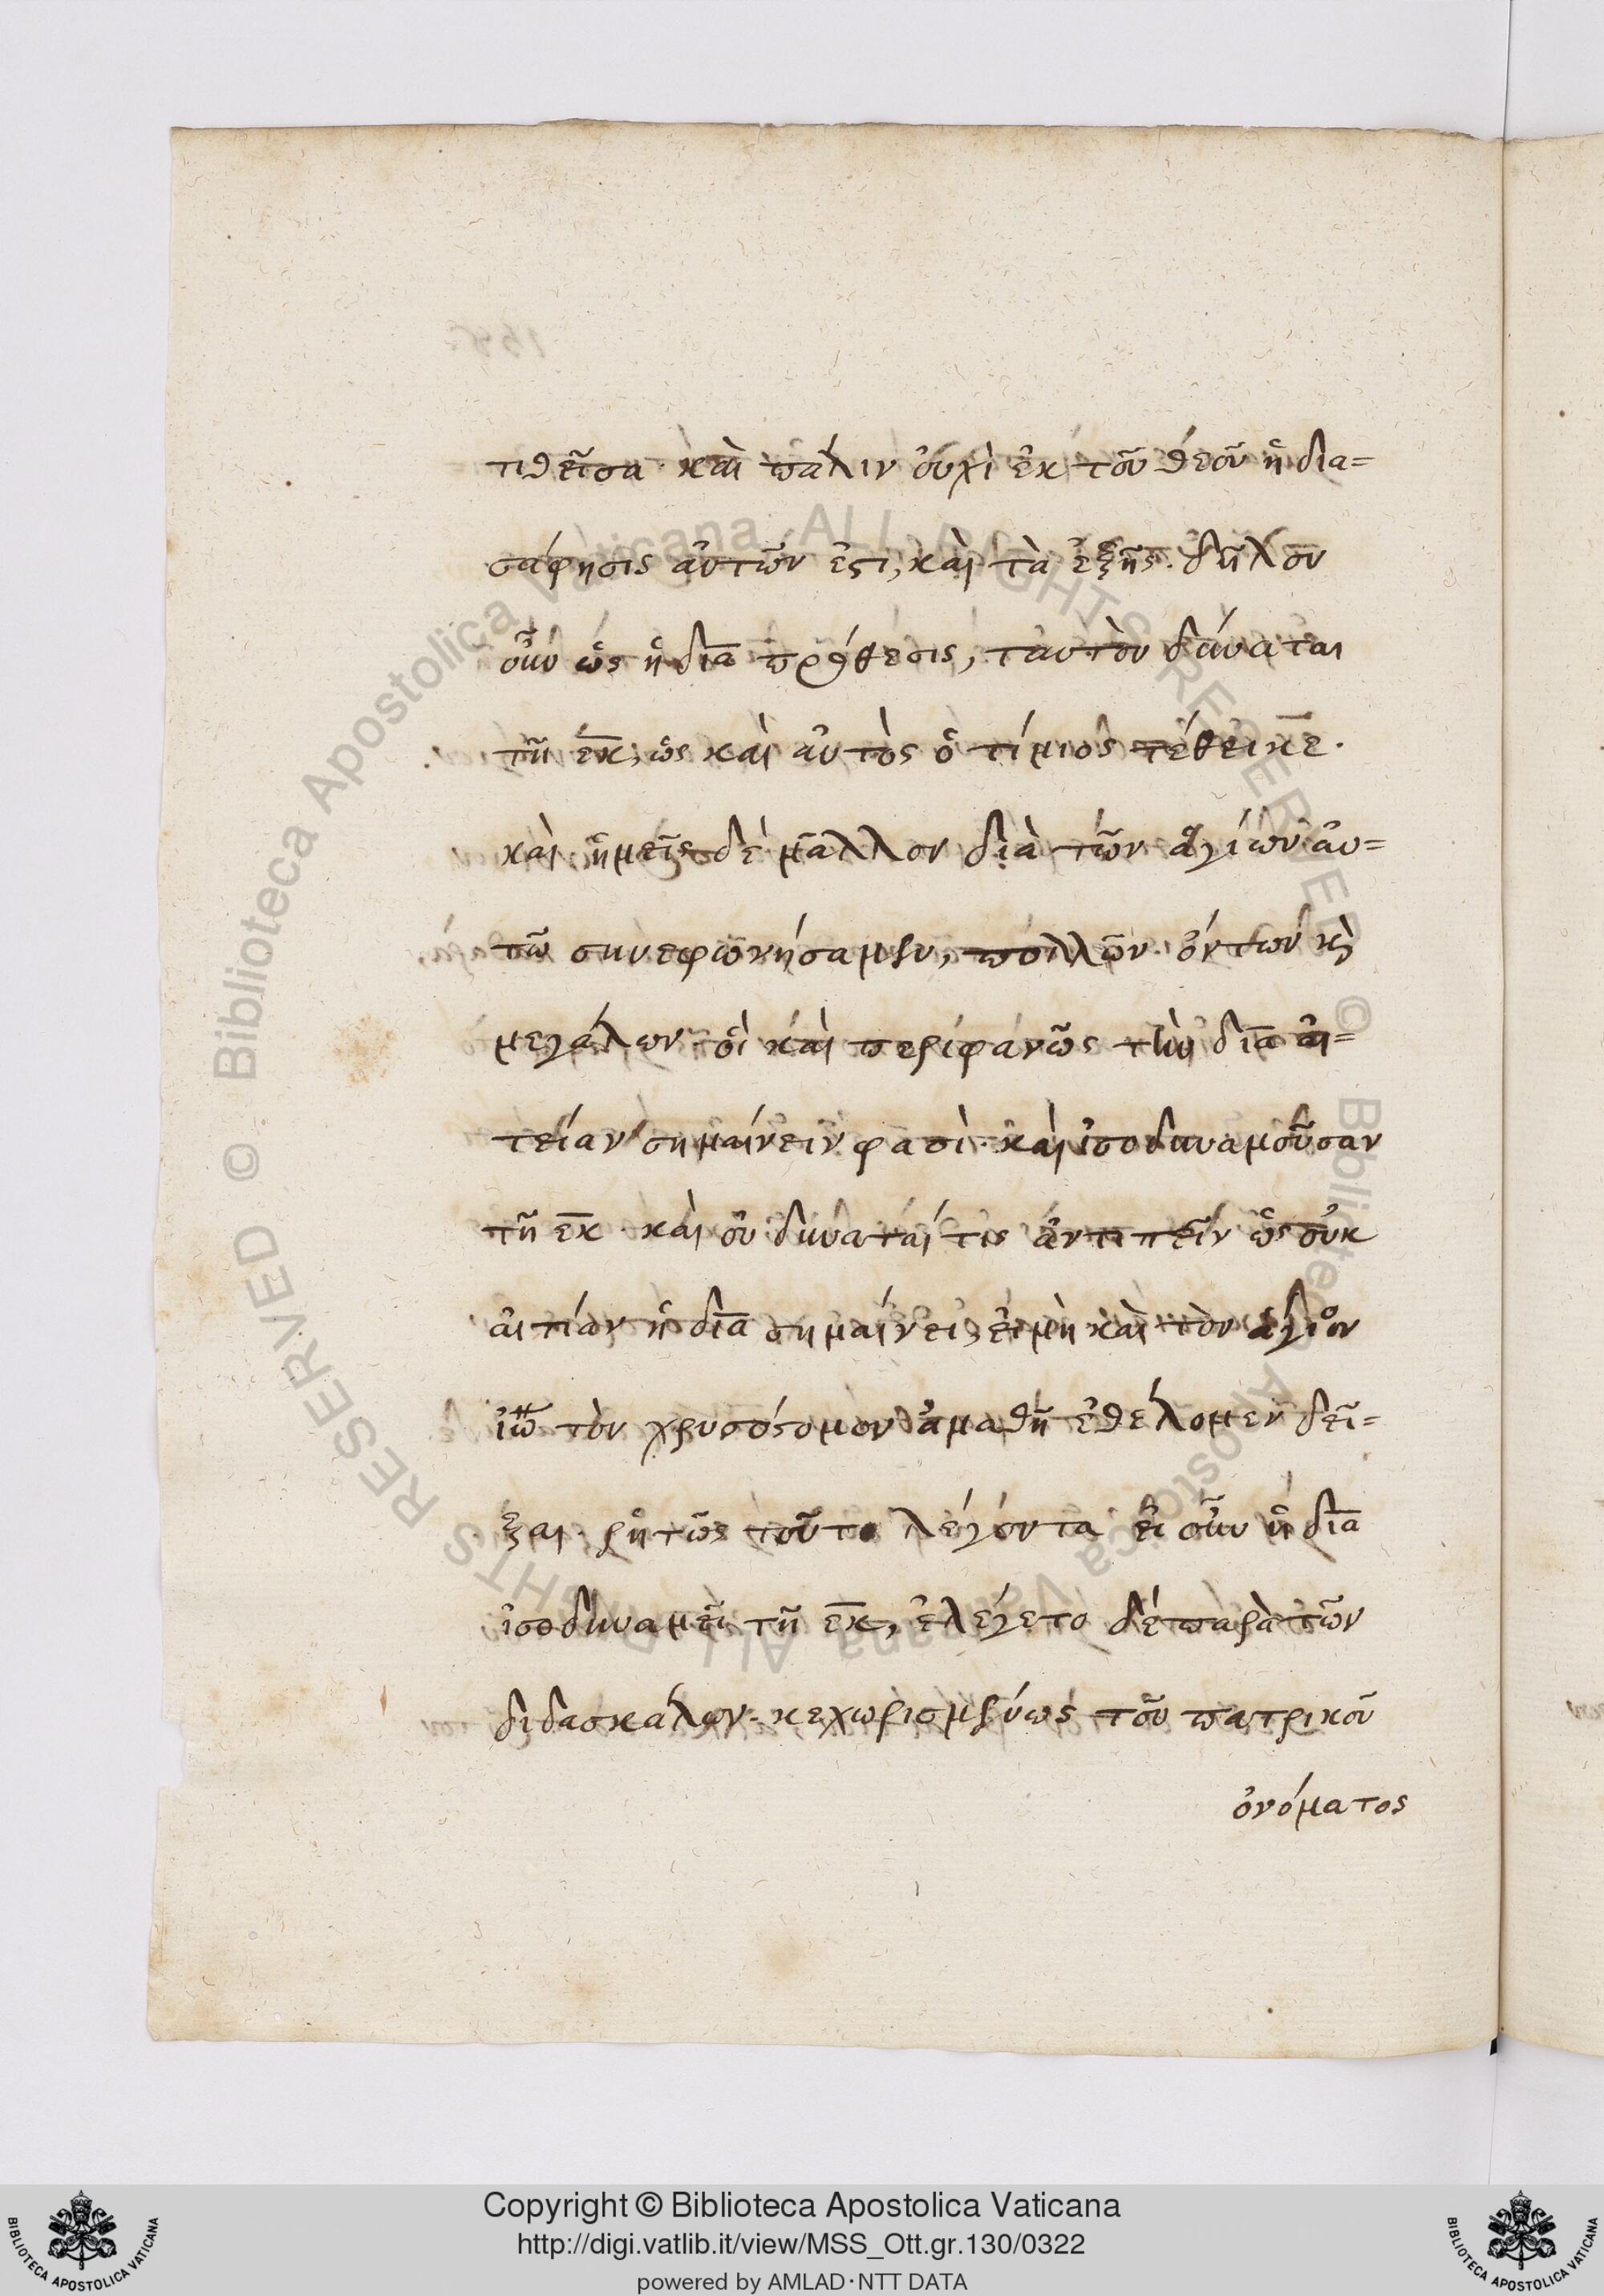 τιθεῖσα· καὶ πάλιν οὐχὶ ἐκ τοῦ θεοῦ ἡ δια=
σάφησις αὐτῶν ἐστι, καὶ τὰ ἑξῆς. δῆλον
οὖν ὡς ἡ διὰ πρόθεσις, ταυτὸν δύναται
τῇ ἐκ, ὡς καὶ αὐτὸς ὁ τίμιος τέθεικε.
καὶ ἡμεῖς δὲ μᾶλλον διὰ τῶν ἁγίων αὐ=
τῶ συνεφωνήσαμεν, πολλῶν ὄντων κ̀
μεγάλων· οἳ καὶ περιφανῶς τὴν διὰ αἰ=
τείαν σημαίνειν φασὶ· καὶ ἰσοδυναμοῦσαν
τῇ ἐκ· καὶ οὐ δύναταί τις ἀντιπεῖν ὡς οὐκ
αἰτίαν ἡ διὰ σημαίνει, εἰ μὴ καὶ τὸν ἅγιον
ἰω̅ τὸν χρυσόστομον ἀμαθῆ ἐθέλομεν δεῖ=
ξαι· ῥητῶς τοῦτο λέγοντα· εἰ οὖν ἡ διὰ
ἰσοδυναμεῖ τῇ ἐκ, ἐλέγετο δὲ παρὰ τῶν
διδασκάλων· κεχωρισμένως τοῦ πατρικοῦ
ὀνόματος
© Biblioteca Apostolica Vaticana ALL RIGHTS RESERVED © Biblioteca Apostolica Vaticana ALL RIGHTS RESERVED
BIBLIOTECA APOSTOLICA VATICANA
Copyright © Biblioteca Apostolica Vaticana
http://digi.vatlib.it/view/MSS_Ott.gr.130/0322
powered by AMLAD·NTT DATA
BIBLIOTECA APOSTOLICA VATICANA